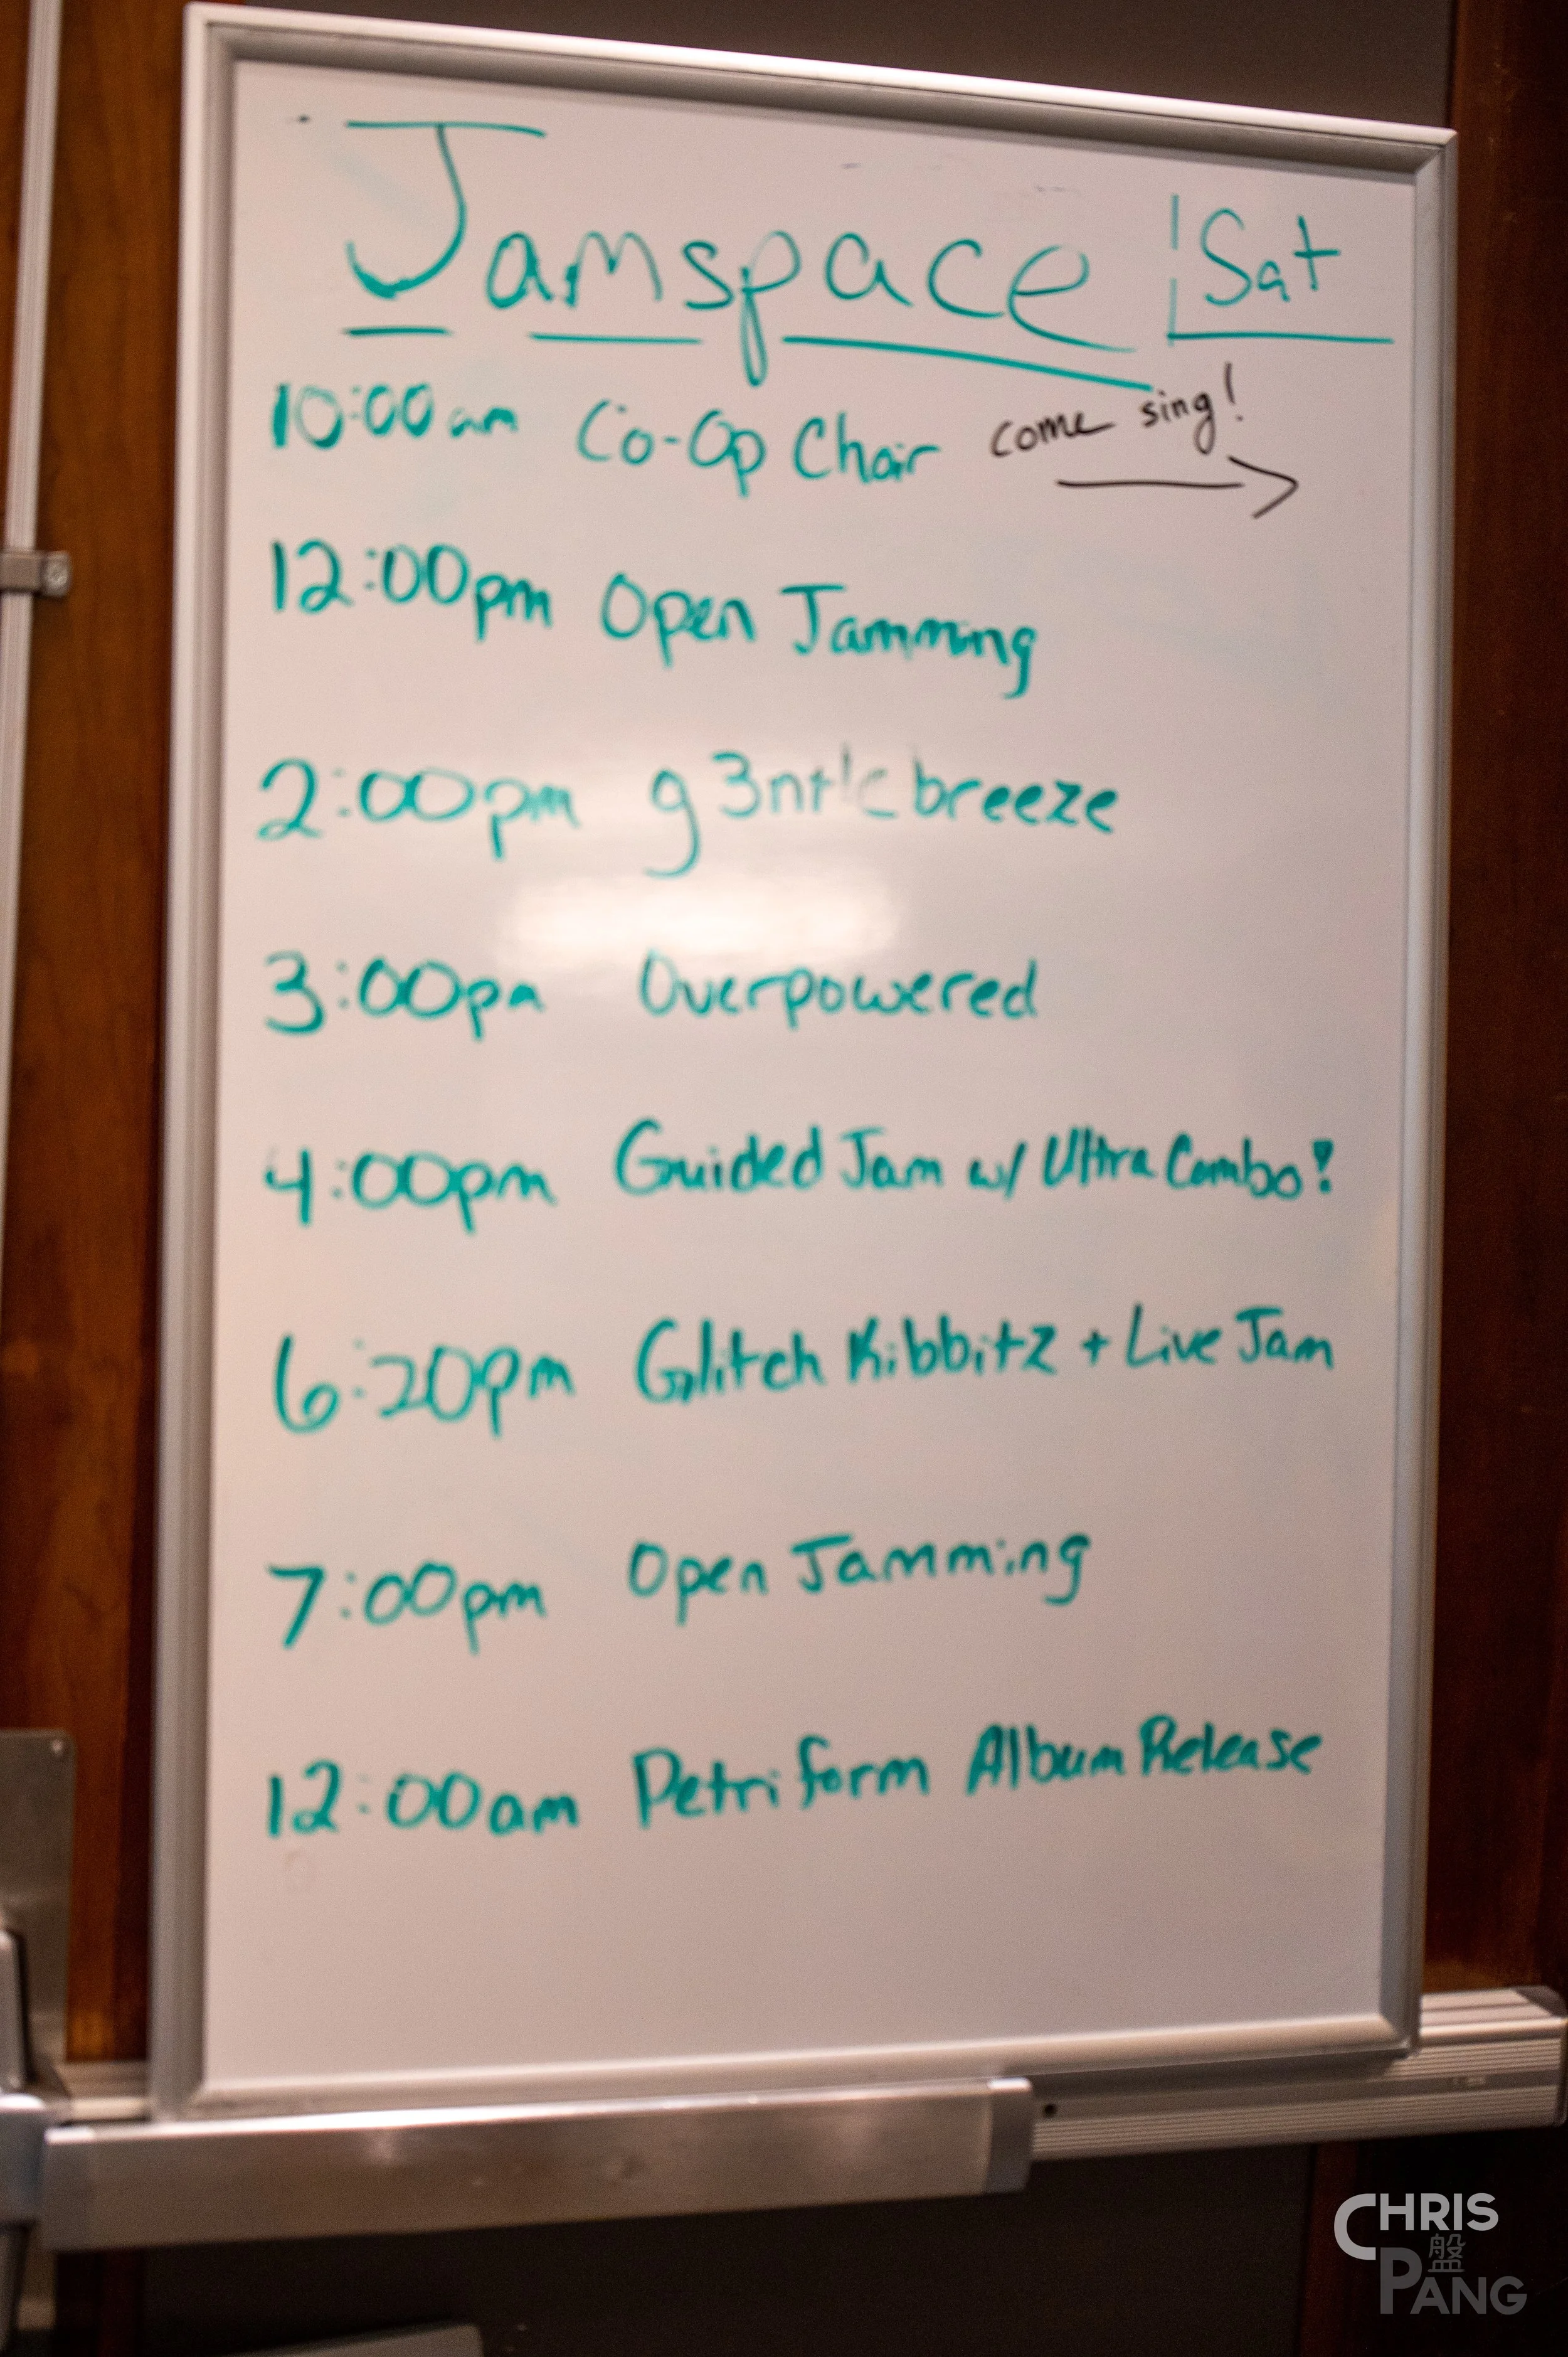 Jamspace Sat
10:00am Co-Op Choir come sing!
12:00pm Open Jamming
2:00pm g3ntle breeze
3:00pm Overpowered
4:00pm Guided Jam w/ Ultra Combo!
6:20pm Glitch Kibbitz + Live Jam
7:00pm Open Jamming
12:00am Petriform Album Release
CHRIS
盤
PANG